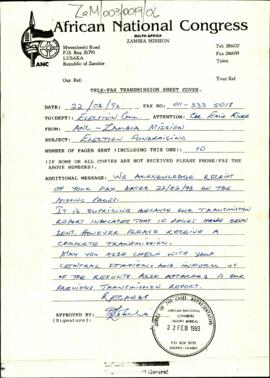 ZaM/003/0019/06
African National Congress
SOUTH AFRICA
ZAMBIA MISSION
ANC
Mwembeshi Road
P.O. Box 31791
LUSAKA
Republic of Zambia
Tel: 286037
286639
Telex
Our Ref:
Your Ref
TELE-FAX TRANSMISSION SHEET COVER.
DATE: 22/02/93 FAX NO: 011-333 5018
TO:(DEPT) ELECTION ATTENTION: Cde
FROM: ANC - ZAMBIA MISSION
SUBJECT: ELECTION FUNDRAISING
NUMBER OF PAGES SENT (INCLUDING THIS ONE): 10
(IF SOME OR ALL COPIES ARE NOT RECEIVED PLEASE PHONE/FAX THE
ABOVE NUMBERS).
ADDITIONAL MESSAGE: WE ACKNOWLEDGE RECEIPT
OF YOUR FAX DATED 22/02/93 ON THE
MISSING PAGES.
IT IS SUPRISING BECAUSE OUR TRANSMISSION
REPORT INDICATES THAT 10 PAGES HAVE BEEN
SENT. HOWEVER PLEASE RECEIVE A
COMPLETE TRANSMISSION.
MAY YOU ALSO CHECK WITH YOUR
CENTRAL STATION AND INFORM US
OF THE RESULTS. ALSO ATTACHED IS OUR
PREVIOUS TRANSMISSION REPORT.
REGARDS
APPROVED BY:
(Signature)
OFFICE OF THE CHIEF REPRESENTATIVE
AFRICAN NATIONAL
CONGRESS
SOUTH AFRICA
22 FEB 1993
P.O. BOX 31791
LUSAKA - ZAMBIA